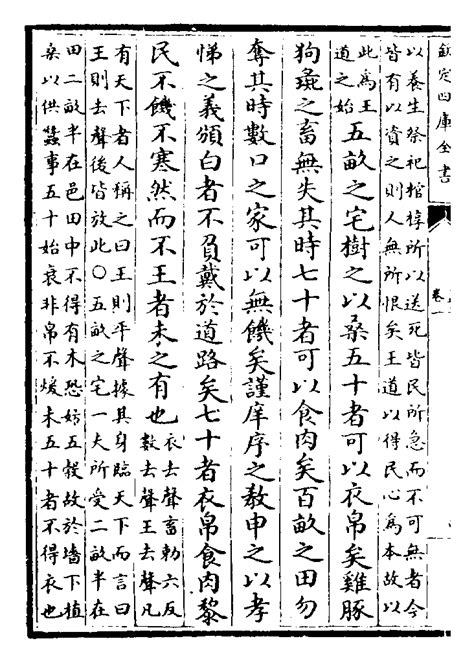 欽定四庫全書
卷一
以養生祭祀棺椁所以送死皆民所急而不可無者今
皆有以資之則人無所恨矣王道以得民心為本故以
此為王
道之始
五畝之宅樹之以桑五十者可以衣帛矣雞豚
狗彘之畜無失其時七十者可以食肉矣百畝之田勿
奪其時數口之家可以無饑矣謹庠序之教申之以孝
悌之義頒白者不負戴於道路矣七十者衣帛食肉黎
民不饑不寒然而不王者未之有也
衣去聲畜勑六反
數去聲王去聲凡
有天下者人稱之曰王則平聲據其身臨天下而言曰
王則去聲後皆放此○五畝之宅一夫所受二畝半在
田二畝半在邑田中不得有木恐妨五穀故於墻下植
桒以供蠶事五十始衰非帛不煖未五十者不得衣也